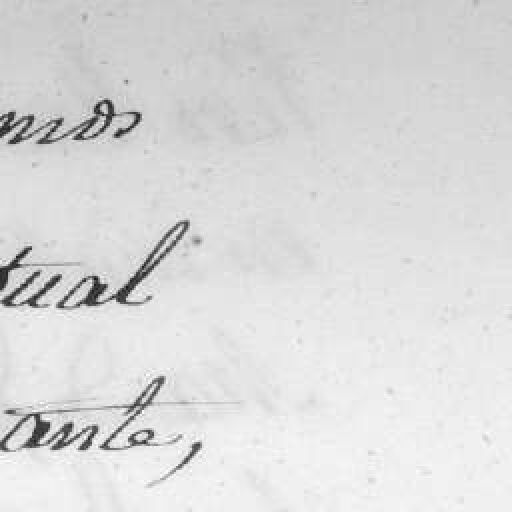 mos
tual
ante,